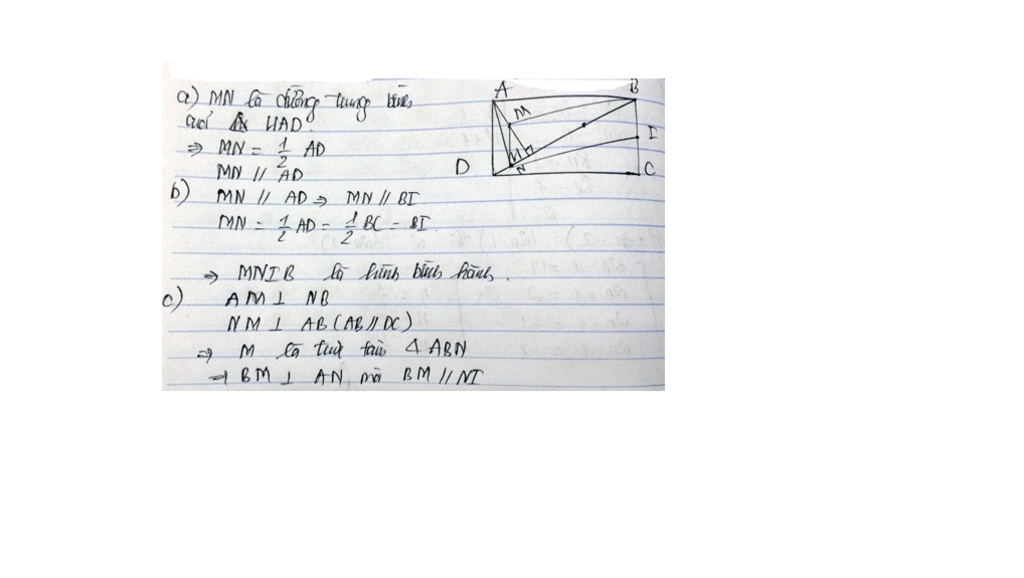 a) MN là đường trung bình
của Δ HAD.
⇒ MN = 1/2 AD
MN // AD
b) MN // AD ⇒ MN // BI
MN = 1/2 AD = 1/2 BC = BI
⇒ MNIB là hình bình hành.
c) AM ⊥ NB
NM ⊥ AB (AB // DC)
⇒ M là trực tâm Δ ABN
⇒ BM ⊥ AN mà BM // NI
A
B
M
I
H
N
D
C